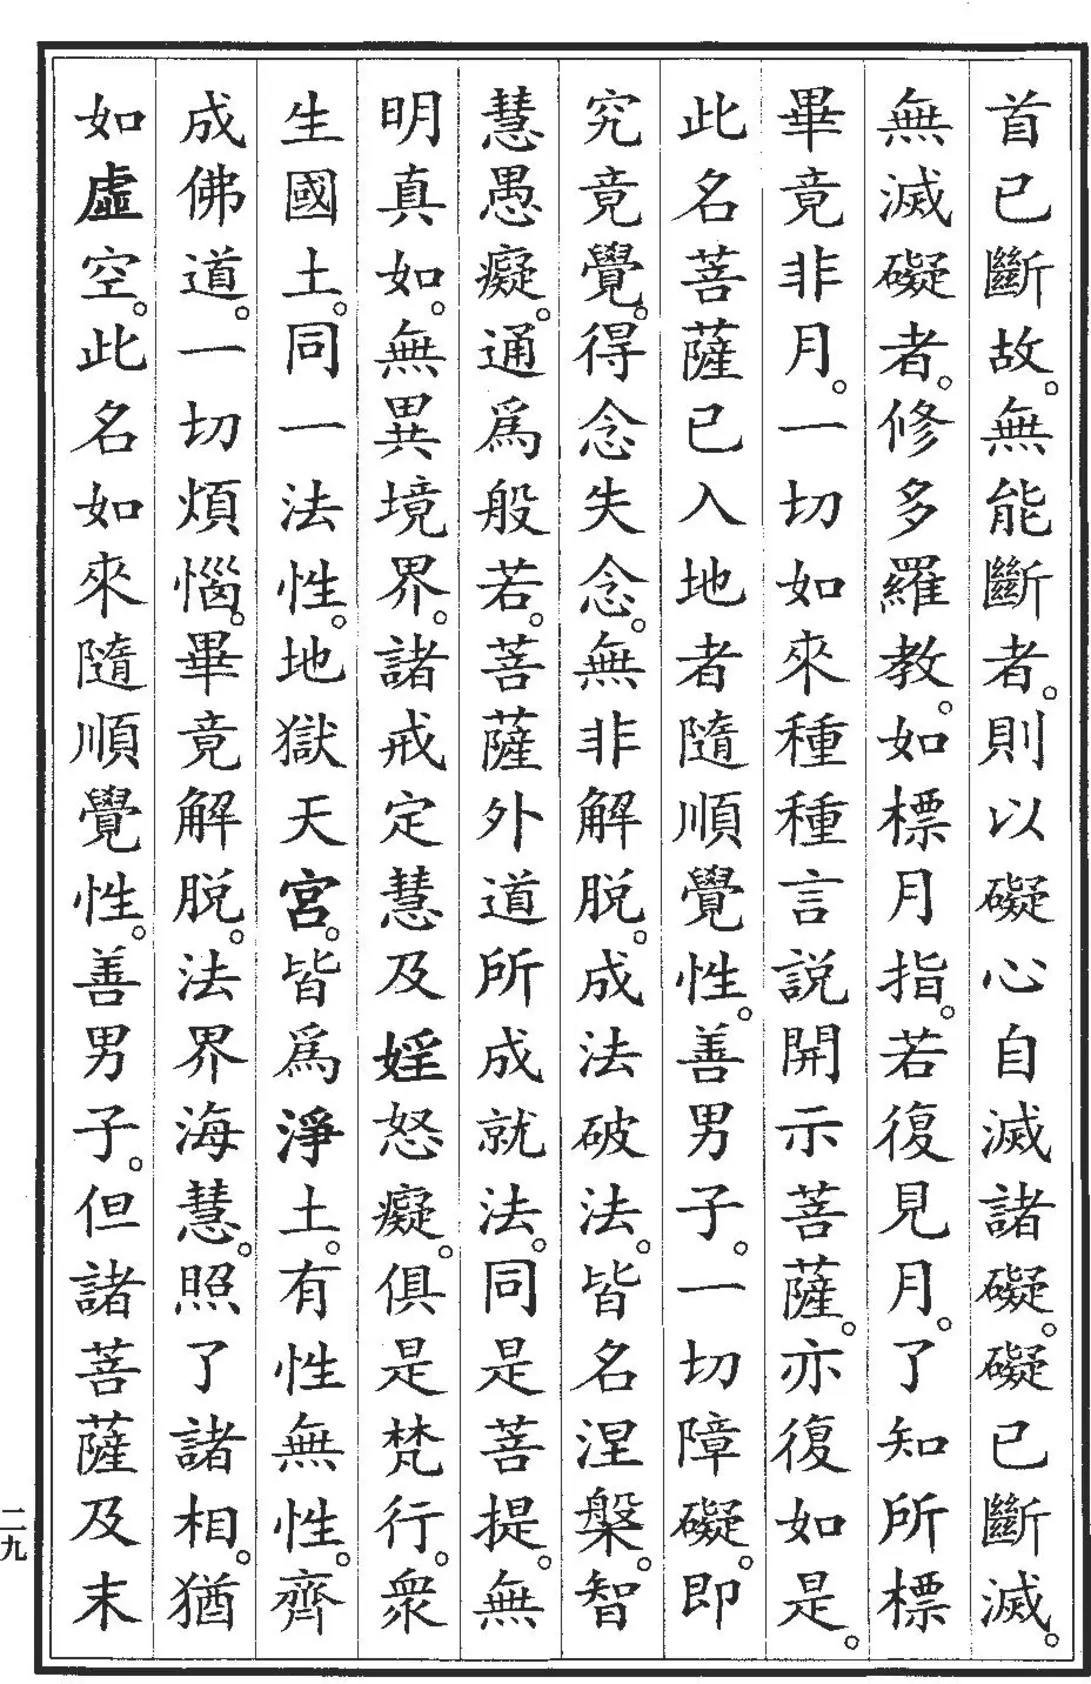 首已斷故。無能斷者。則以礙心自滅諸礙。礙已斷滅。
無滅礙者。修多羅教。如標月指。若復見月。了知所標
畢竟非月。一切如來種種言說開示菩薩。亦復如是。
此名菩薩已入地者隨順覺性。善男子。一切障礙。即
究竟覺。得念失念。無非解脫。成法破法。皆名涅槃。智
慧愚癡。通爲般若。菩薩外道所成就法。同是菩提。無
明真如。無異境界。諸戒定慧及婬怒癡。俱是梵行。眾
生國土。同一法性。地獄天宮。皆爲淨土。有性無性。齊
成佛道。一切煩惱。畢竟解脫。法界海慧。照了諸相。猶
如虛空。此名如來隨順覺性。善男子。但諸菩薩及末
二九